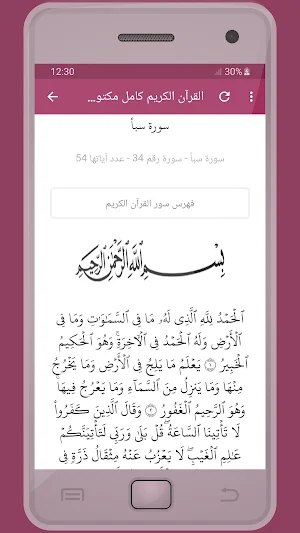 12:30
30%
القرآن الكريم كامل مكتو...
سورة سبأ
سورة سبأ - سورة رقم 34 - عدد آياتها 54
فهرس سور القرآن الكريم
بِسْمِ ٱللَّهِ ٱلرَّحْمَٰنِ ٱلرَّحِيمِ
ٱلْحَمْدُ لِلَّهِ ٱلَّذِى لَهُۥ مَا فِى ٱلسَّمَٰوَٰتِ وَمَا فِى
ٱلْأَرْضِ وَلَهُ ٱلْحَمْدُ فِى ٱلْءَاخِرَةِ ۚ وَهُوَ ٱلْحَكِيمُ
ٱلْخَبِيرُ ١ يَعْلَمُ مَا يَلِجُ فِى ٱلْأَرْضِ وَمَا يَخْرُجُ
مِنْهَا وَمَا يَنزِلُ مِنَ ٱلسَّمَآءِ وَمَا يَعْرُجُ فِيهَا
وَهُوَ ٱلرَّحِيمُ ٱلْغَفُورُ ٢ وَقَالَ ٱلَّذِينَ كَفَرُوا۟
لَا تَأْتِينَا ٱلسَّاعَةُ ۖ قُلْ بَلَىٰ وَرَبِّى لَتَأْتِيَنَّكُمْ
عَٰلِمِ ٱلْغَيْبِ ۖ لَا يَعْزُبُ عَنْهُ مِثْقَالُ ذَرَّةٍ فِى